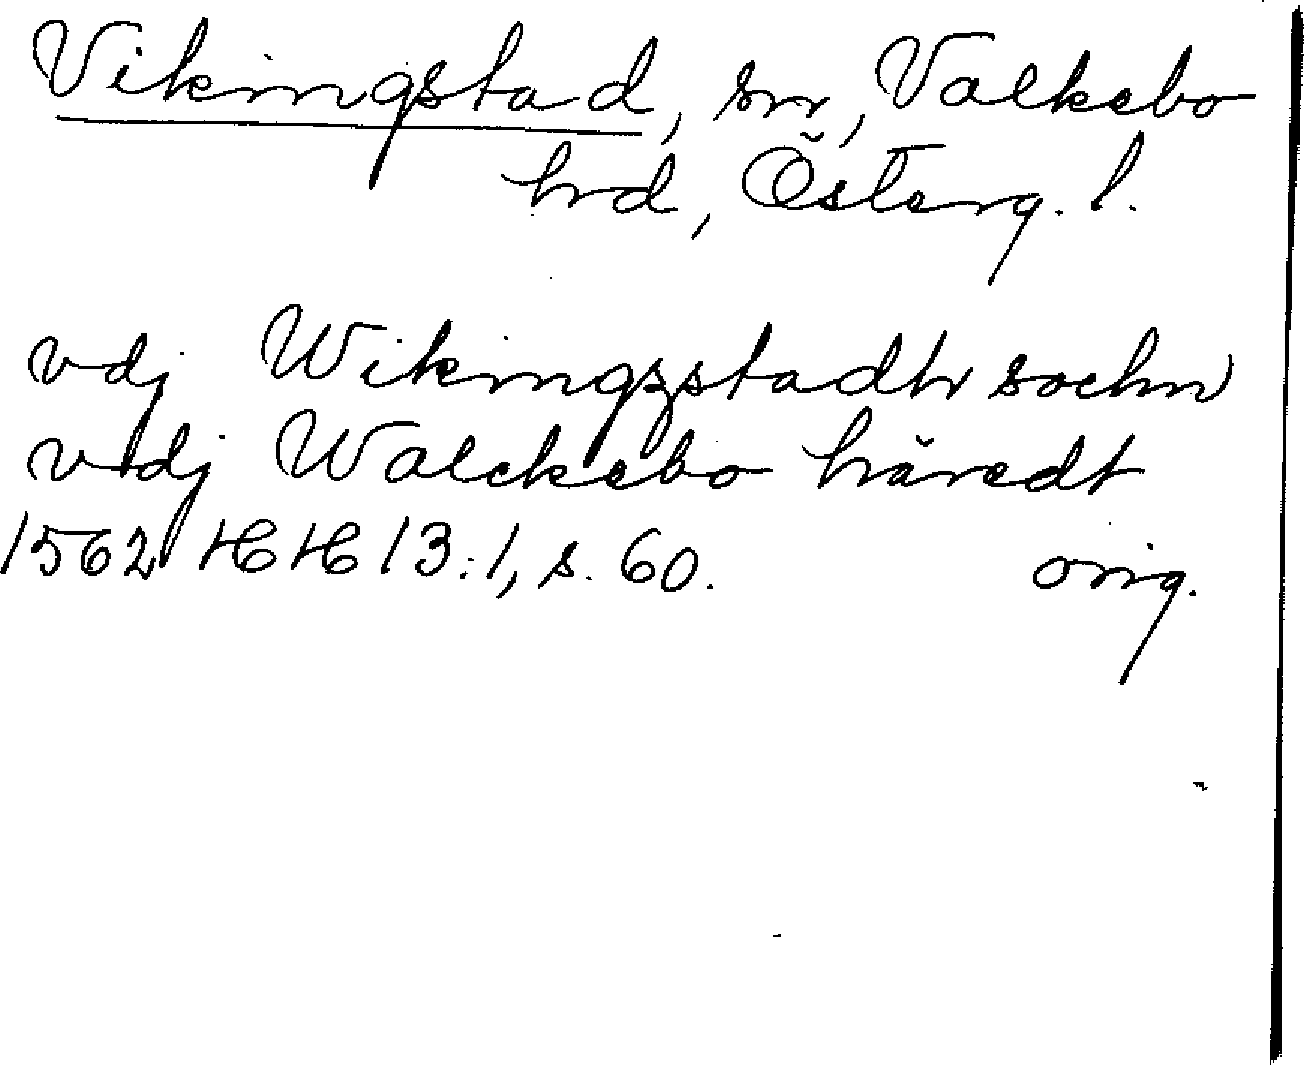 Vikingstad, sn, Valkebo
hrd, Österg. l.
vdj Wikingzstadh sochn
vdj Walckebo häredt
1562 HH 13:1, s. 60. orig.